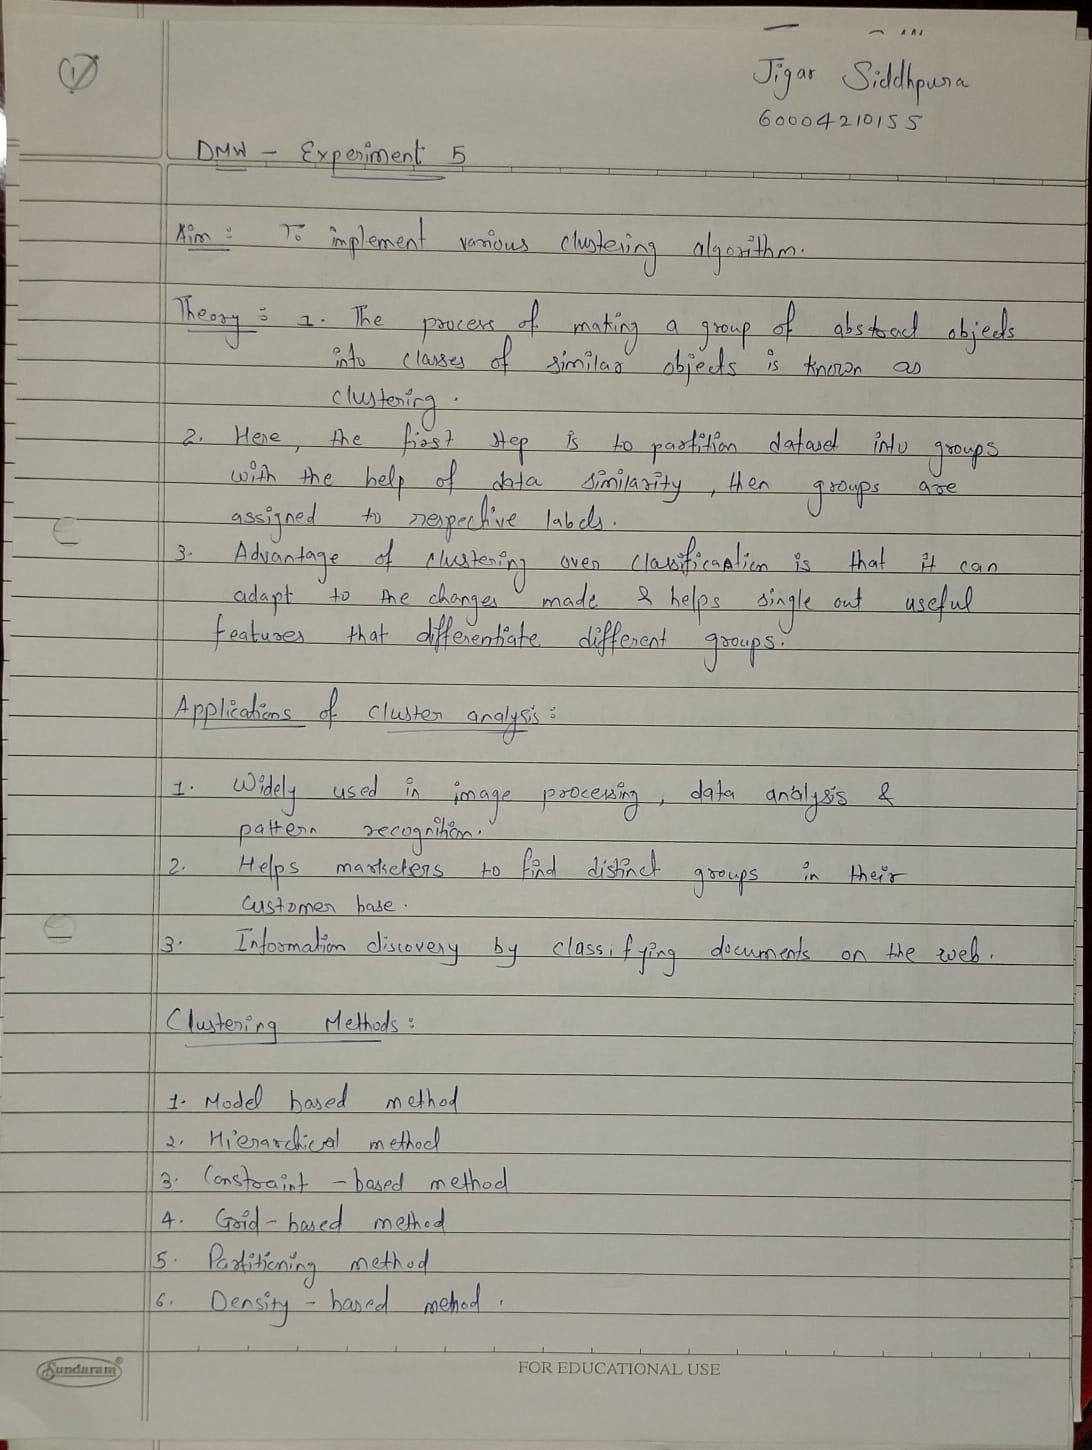 1
Jigar Siddhpura
60004210155
DMW - Experiment 5
Aim : To implement various clustering algorithm.
Theory : 1. The process of making a group of abstract objects
into classes of similar objects is known as
clustering.
2. Here, the first step is to partition dataset into groups
with the help of data similarity, then groups are
assigned to respective labels.
3. Advantage of clustering over classification is that it can
adapt to the changes made & helps single out useful
features that differentiate different groups.
Applications of cluster analysis :
1. Widely used in image processing, data analysis &
pattern recognition.
2. Helps marketers to find distinct groups in their
customer base.
3. Information discovery by classifying documents on the web.
Clustering Methods :
1. Model based method
2. Hierarchical method
3. Constraint - based method
4. Grid - based method
5. Partitioning method
6. Density - based method.
Sundaram®
FOR EDUCATIONAL USE